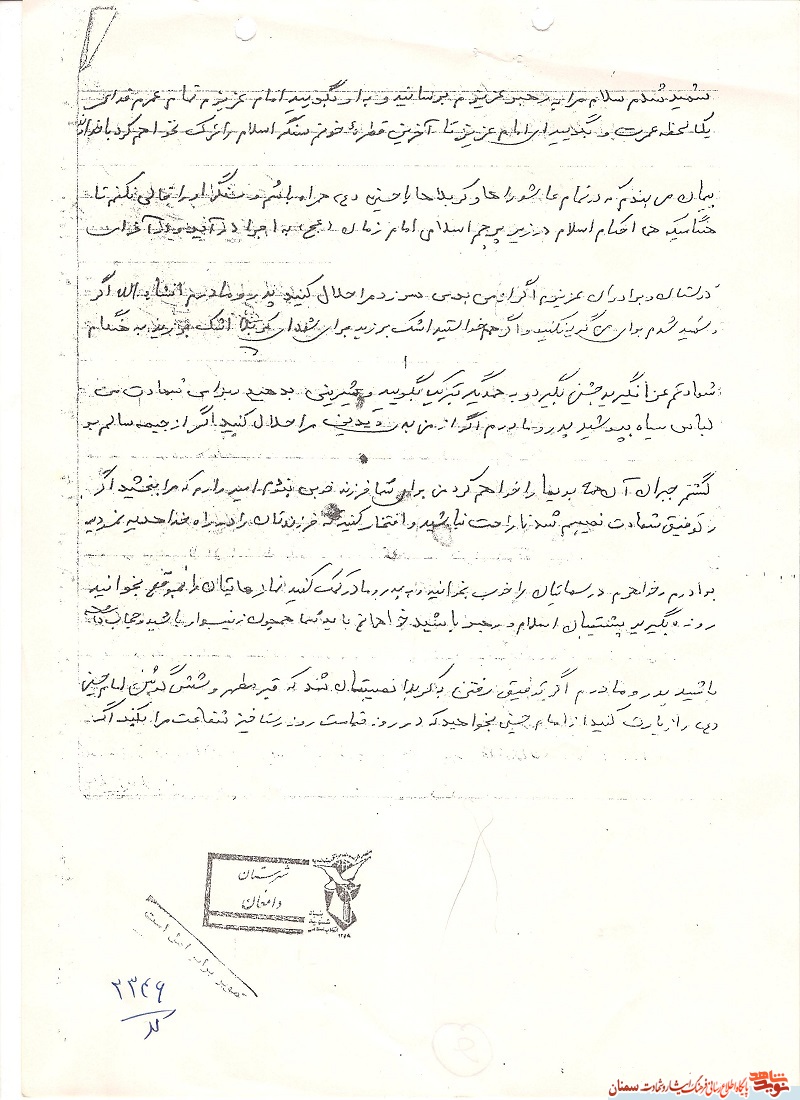 شهید شدم سلام مرا به رهبر عزیزم برسانید و به او بگویید امام عزیزم تمام عمرم فدای
یک لحظه عمرت و بگویید ای امام عزیز تا آخرین قطرهٔ خونم سنگر اسلام را ترک نخواهم کرد با خدای
پیمان می بندم که در تمام عاشوراها و کربلاها با حسین (ع) همراه باشم و سنگر او را خالی نکنم تا
هنگامیکه همه احکام اسلام در زیر پرچم اسلامی امام زمان (عج) به اجرا در آید
دوستان و برادران عزیزم اگر از من بدی سر زد مرا حلال کنید پدر و مادرم انشاء الله اگر
شهید شدم برای من گریه نکنید و اگر هم خواستید اشک بریزید برای شهدای کربلا اشک بریزید به هنگام
شهادتم عزا نگیرید جشن بگیرید و به همدیگر تبریک بگویید و شیرینی بدهید برای شهادت من
لباس سیاه نپوشید پدر و مادرم اگر از من بدی دیدین مرا حلال کنید اگر از جبهه سالم بر
گشتم جبران آن همه بدیها را خواهم کرد من برای شما فرزند خوبی نبودم امیدوارم که مرا ببخشید اگر
توفیق شهادت نصیبم شد ناراحت نباشید و افتخار کنید که فرزندتان را در راه خدا هدیه نمودید
برادرم و خواهرم درسهایتان را خوب بخوانید و به پدر و مادر کمک کنید نمازهایتان را بموقع بخوانید
روزه بگیرید پشتیبان اسلام و رهبر باشید خواهرانم باید شما همچون زینب سوار باشید و حجاب داشته
باشید پدر و مادرم اگر توفیق رفتن به کربلا نصیبتان شد که قبر مطهر و شش گوشهٔ امام حسین
(ع) را زیارت کنید از امام حسین بخواهید که در روز قیامت روز رستاخیز شفاعت مرا بکند اگر
شهرستان
دامغان
تصویر برابر اصل است
۲۳۴۶
کد
نوید شاهد
پایگاه اطلاع رسانی فرهنگ ایثار و شهادت سمنان